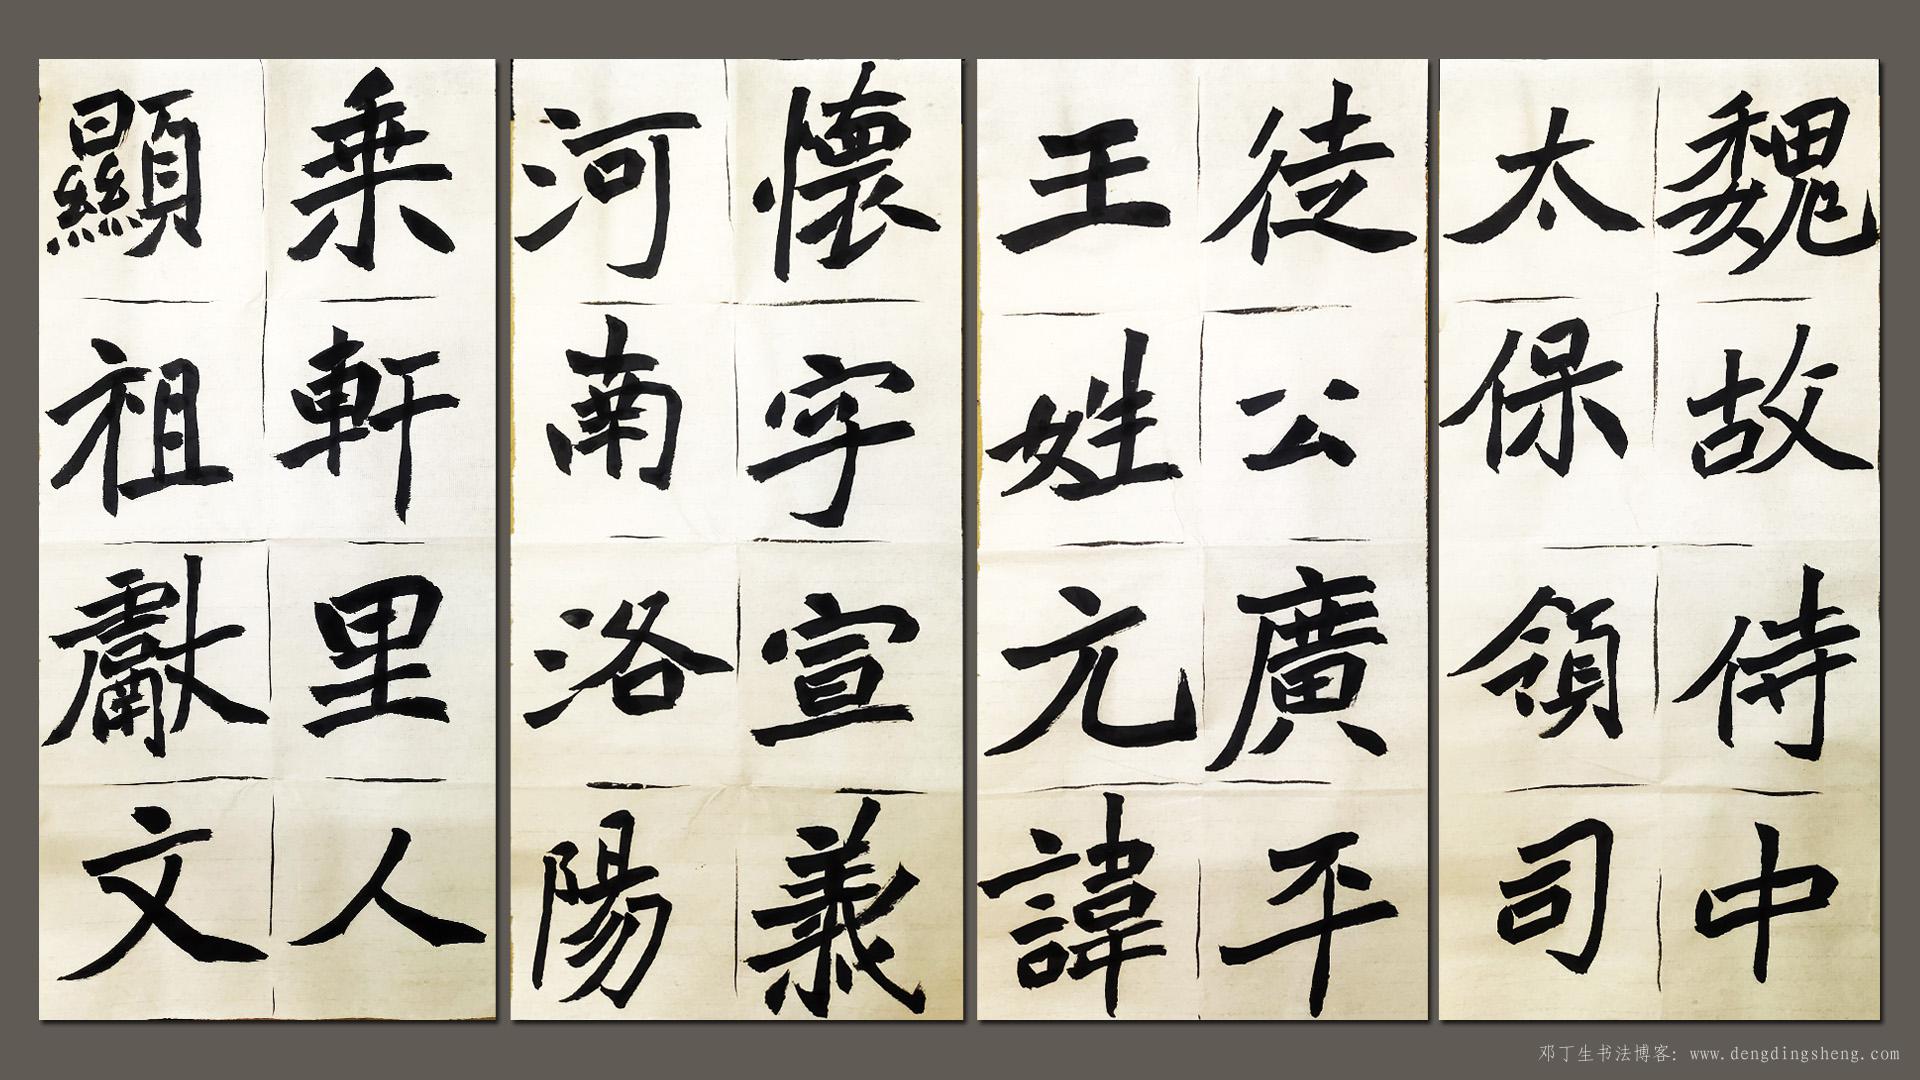 魏故侍中
太保領司
徒公廣平
王姓元諱
懷字宣義
河南洛陽
乘軒里人
顯祖獻文
邓丁生书法博客: www.dengdingsheng.com